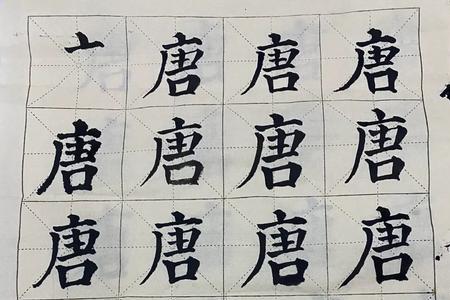 亠唐唐唐
唐唐唐唐
唐唐唐唐